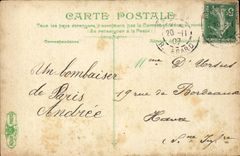 CARTE POSTALE
Tous les pays étrangers n'acceptent pas la Correspondance
Se renseigner à la Poste
Correspondance
20 - 11
07
Un bombaiser
de Paris
Andrée
Mme D'
19 rue de Bordeaux
Havre
Sne Infre